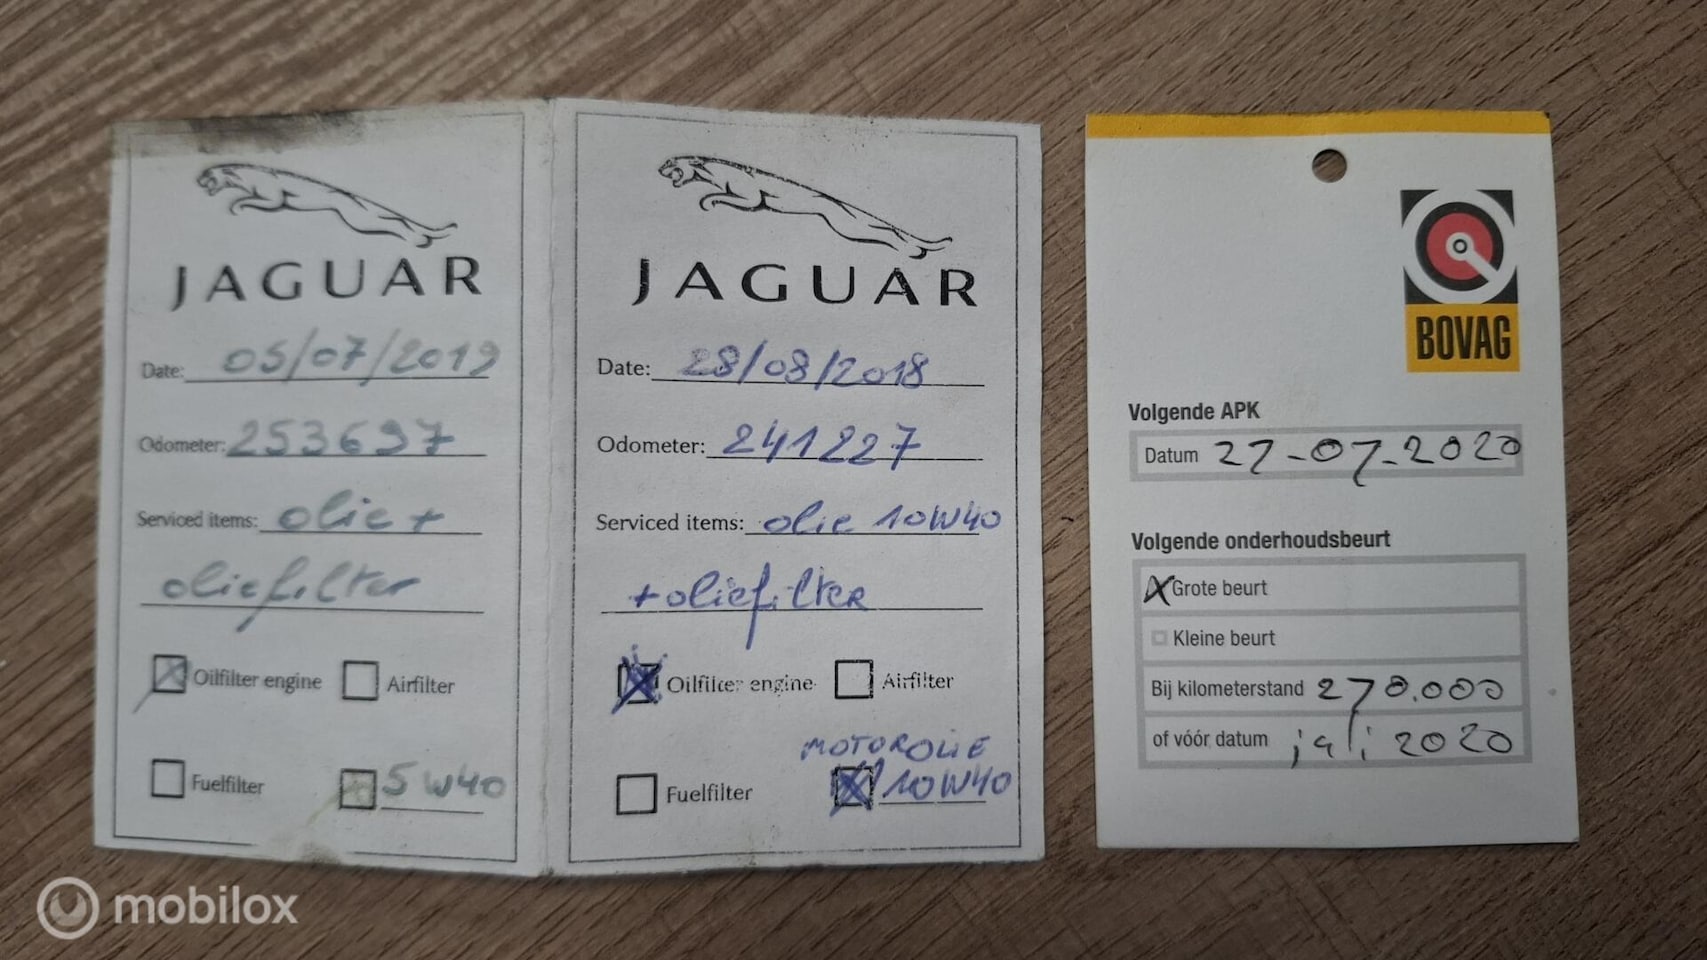 JAGUAR
Date: 05/07/2019
Odometer: 253697
Serviced items: olie +
oliefilter
Oilfilter engine
Airfilter
Fuelfilter
5W40
JAGUAR
Date: 28/08/2018
Odometer: 241227
Serviced items: olie 10W40
+ oliefilter
Oilfilter engine
Airfilter
MOTOROLIE
Fuelfilter
10W40
BOVAG
Volgende APK
Datum 27-07-2020
Volgende onderhoudsbeurt
Grote beurt
Kleine beurt
Bij kilometerstand 270.000
of vóór datum juli 2020
mobilox